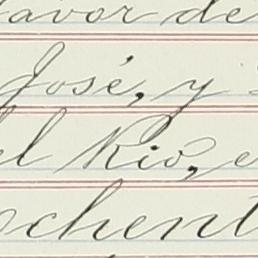 favor de
José, y
el Rio, e
ochent